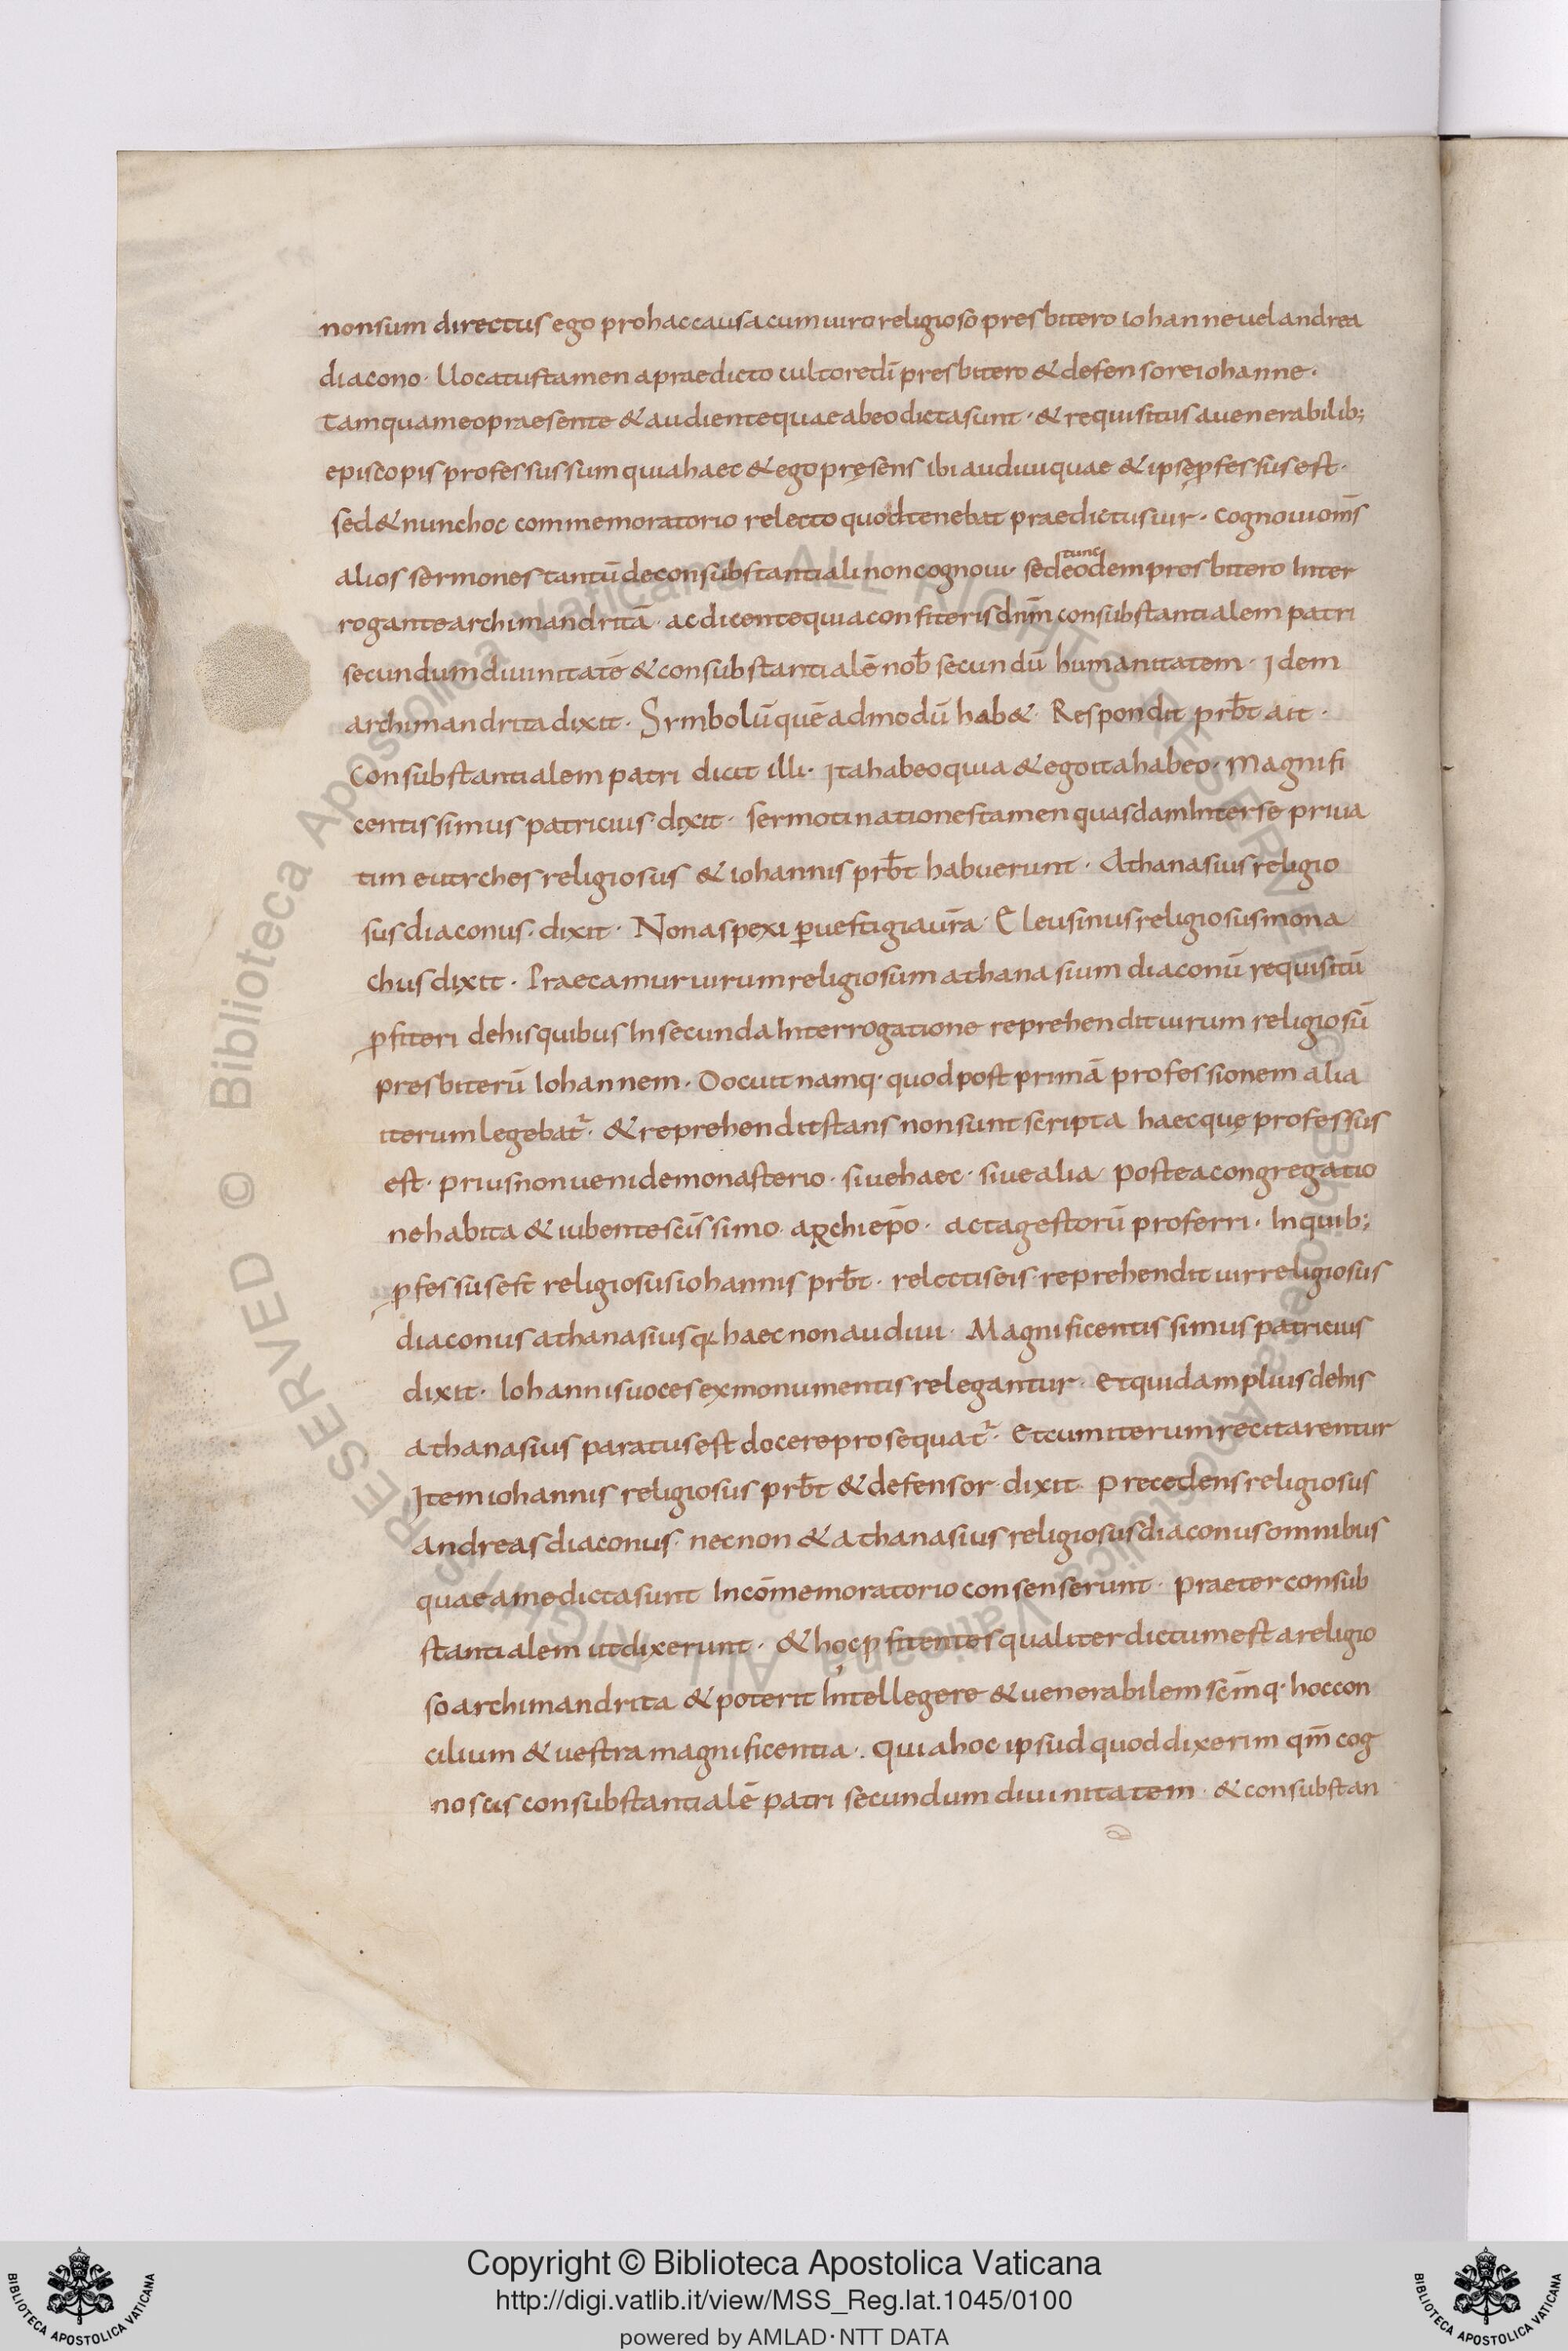 non sum directus ego pro hac causa cum uiro religioso presbitero iohanne uel andrea
diacono · Uocatus tamen a praedicto cultore dī presbitero & defensore iohanne ·
tamquam eo praesente & audiente quae ab eo dicta sunt · & requisitus a uenerabilib;
episcopis professus sum quia haec & ego pręsens ibi audiui quae & ipse ꝓfessus est ·
sed & nunc hoc commemoratorio relecto quod tenebat praedictus uir · cognoui om̄s
alios sermones tantū de consubstantiali non cognoui · sed tunc eodem presbitero Inter
rogante archimandritā · ac dicente quia confiteris dn̄m consubstantialem patri
secundum diuinitatē & consubstantialē nob̄ secundū humanitatem · Idem
archimandrita dixit · Srmbolū quēadmodū hab& · Respondit prb̄t ait ·
Consubstantialem patri dicit illi · Ita habeo quia & ego ita habeo · Magnifi
centissimus patricius dixit · sermotinationes tamen quasdam Inter se priua
tim eutrches religiosus & iohannis prb̄t habuerunt · Athanasius religio
sus diaconus · dixit · Non aspexi ꝑ uestigia ur̄a · Eleusinus religiosus mona
chus dixit · Praecamur uirum religiosum athanasium diaconū requisitū
ꝓfiteri de his quibus In secunda Interrogatione reprehendit uirum religiosū
presbiterū Iohannem · Docuit namq · quod post primā professionem alia
iterum legebat᷑ · & reprehendit stans non sunt scripta haec quę professus
est · prius non ueni de monasterio · siue haec · siue alia · postea congregatio
ne habita & iubente scīssimo · archiep̄o · acta gestorū proferri · In quib;
ꝓfessus est religiosus iohannis prb̄t · relectis eis reprehendit uir religiosus
diaconus athanasius q haec non audiui · Magnificentissimus patricius
dixit · Iohannis uoces ex monumentis relegantur · et quid amplius de his
athanasius paratus est docere prosequat᷑ · Et cum iterum recitarentur
Item iohannis religiosus prb̄t & defensor dixit · Precedens religiosus
andreas diaconus · nec non & athanasius religiosus diaconus omnibus
quae a me dicta sunt In cōmemoratorio consenserunt · praeter consub
stantialem ut dixerunt · & hoc ꝓfitentes qualiter dictum est a religio
so archimandrita & poterit Intellegere & uenerabilem scm̄q · hoc con
cilium & uestra magnificentia · quia hoc ipsud quod dixerim qm̄ cog
noscis consubstantialē patri secundum diuinitatem · & consubstan
Copyright © Biblioteca Apostolica Vaticana
http://digi.vatlib.it/view/MSS_Reg.lat.1045/0100
powered by AMLAD · NTT DATA
BIBLIOTECA APOSTOLICA VATICANA
BIBLIOTECA APOSTOLICA VATICANA